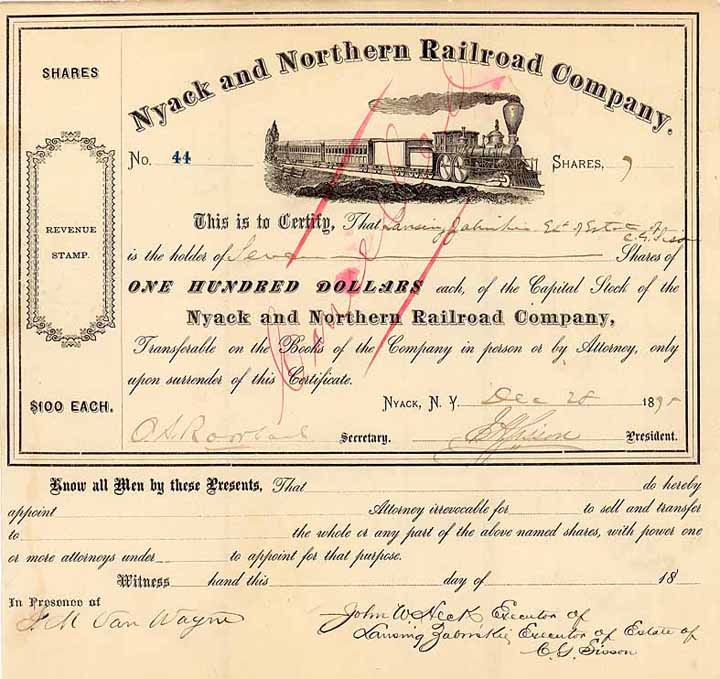 Nyack and Northern Railroad Company.
SHARES
No. 44 SHARES, 7
REVENUE
STAMP.
This is to Certify, That Lansing Zabriskie Ex. of Estate of
C. G. Sisson
is the holder of Seven Shares of
ONE HUNDRED DOLLARS each, of the Capital Stock of the
Nyack and Northern Railroad Company,
Transferable on the Books of the Company in person or by Attorney, only
upon surrender of this Certificate.
Cancelled
$100 EACH.
NYACK, N. Y. Dec 28 1895
Secretary. President.
Know all Men by these Presents, That do hereby
appoint Attorney irrevocable for to sell and transfer
to the whole or any part of the above named shares, with power one
or more attorneys under to appoint for that purpose.
Witness hand this day of 18
In Presence of
Van Wayne
John W Heck Executor of
Lansing Zabriskie, Executor of Estate of
C. G. Sisson